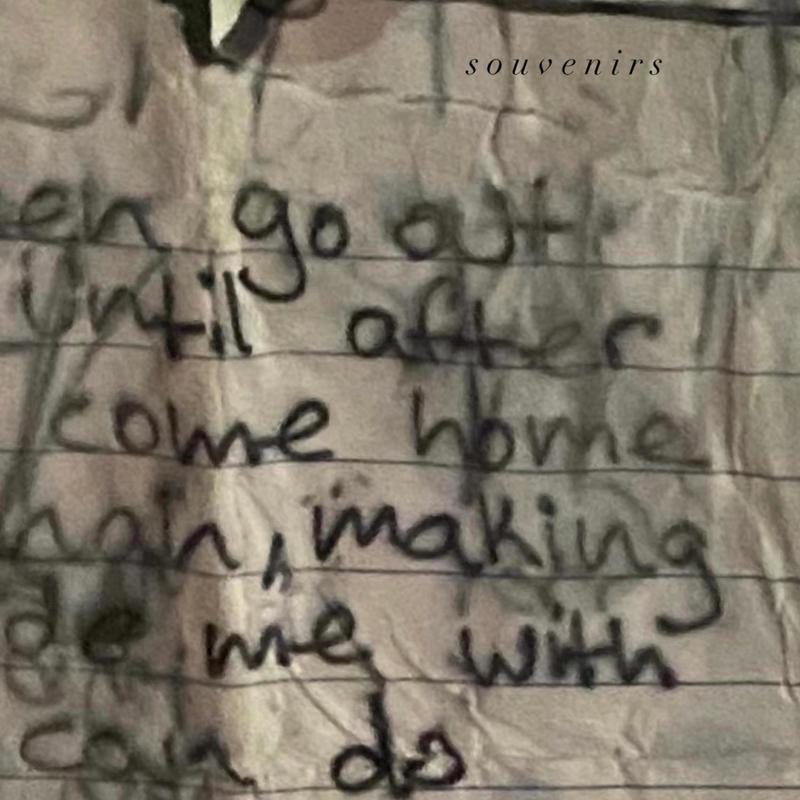 souvenirs
en go out
Until after
come home
hain, making
de me with
can do